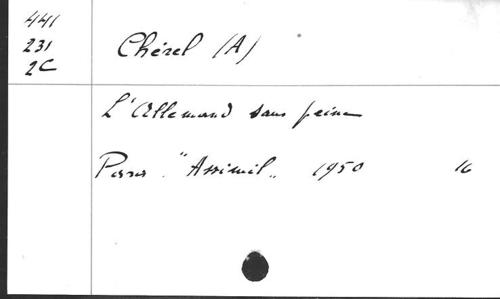 441
231
2C
Chérel (A)
L'Allemand sans peine
Paris. "Assimil" 1950 16